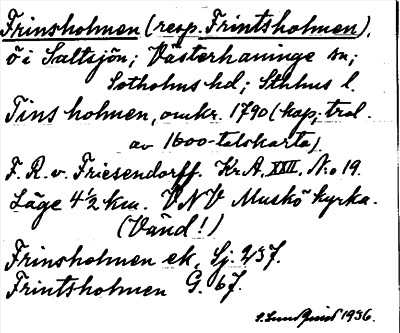 Frinsholmen (resp. Frintsholmen),
ö i Saltsjön; Västerhaninge sn;
Sotholms hd; Sthlms l.
Tins holmen, omkr. 1790 (kop; trol.
av 1600-talskarta).
F. R. v. Friesendorff. Kr. A. XXII. N:o 19.
Läge 4 1/2 km. VNV Muskö kyrka.
(Vänd!)
Frinsholmen ek. Sj. 237.
Frintsholmen G. 67.
S. Lundquist 1936.